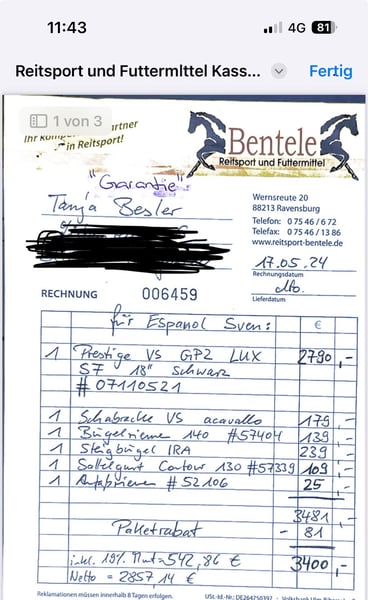 11:43
4G 81
Reitsport und Futtermittel Kass...
Fertig
1 von 3
in Reitsport!
Bentele
Reitsport und Futtermittel
"Garantie"
Tanja Besler
Wernsreute 20
88213 Ravensburg
Telefon: 0 75 46 / 6 72
Telefax: 0 75 46 / 13 86
www.reitsport-bentele.de
17.05.24
Rechnungsdatum
dto.
Lieferdatum
RECHNUNG 006459
für Espanol Sven: €
1 Prestige VS GP2 LUX 2790,-
S7 18" schwarz
# 07110521
1 Schabracke VS acavallo 179,-
1 Bügelriemen 140 #57404 139,-
1 Steigbügel IRA 239,-
1 Sattelgurt Contour 130 #57339 109,-
1 #52106 25,-
3481,-
Paketrabat - 81,-
inkl. 19% Mwt=542,86 € 3400,-
Netto = 2857,14 €
Reklamationen müssen innerhalb 8 Tagen erfolgen.
USt.-Id.-Nr.: DE264750397